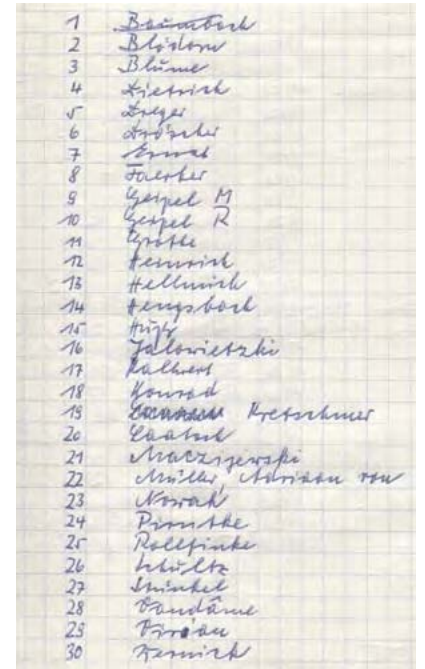 1 Baumbach
2 Blödorn
3 Blume
4 Dietrich
5 Dreger
6 Dröscher
7
8 Faerber
9 Geipel M
10 Geipel R
11 Grothe
12 Heinrich
13 Hellmich
14 Hengsbach
15
16 Jalowietzki
17
18 Konrad
19 Kretschmer
20 Laatsch
21 Maczijewski
22 Müller, von
23 Nowak
24
25 Rollfinke
26 Schultz
27 Stinkel
28 Vandâme
29
30 Wernich